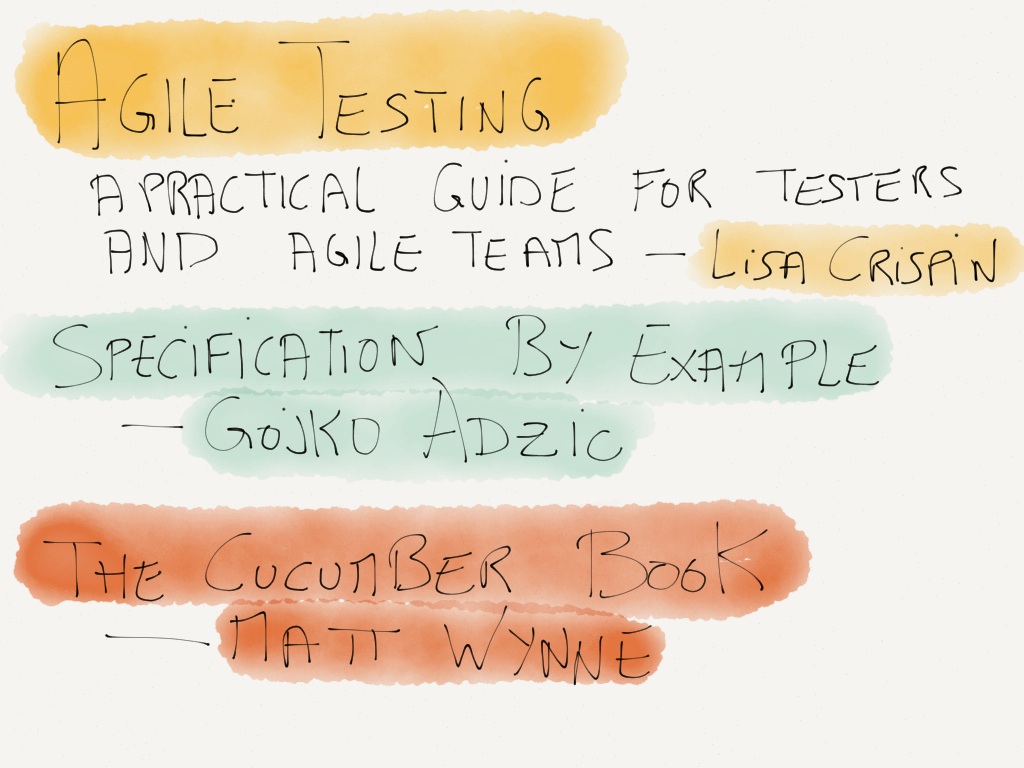 AGILE TESTING
A PRACTICAL GUIDE FOR TESTERS
AND AGILE TEAMS — LISA CRISPIN
SPECIFICATION BY EXAMPLE
— GOJKO ADZIC
THE CUCUMBER BOOK
— MATT WYNNE